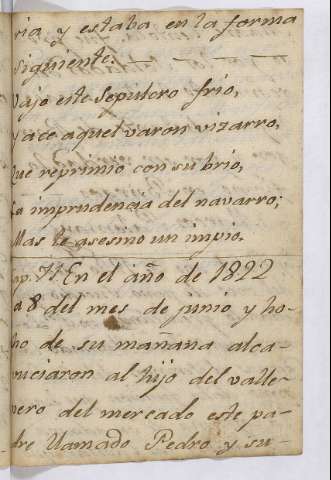 ria y estaba en la forma
siguiente. — — — —
Vajo este Sepulcro frio,
yace aquel varon vizarro,
Que reprimio con su brio,
La imprudencia del navarro;
Mas le asesino un impio.
ap. 71. En el año de 1822
a 8 del mes de junio y ho-
ho de su mañana alca-
nuciaron al hijo del valle-
vero del mercado este pa-
dre llamado Pedro y su-